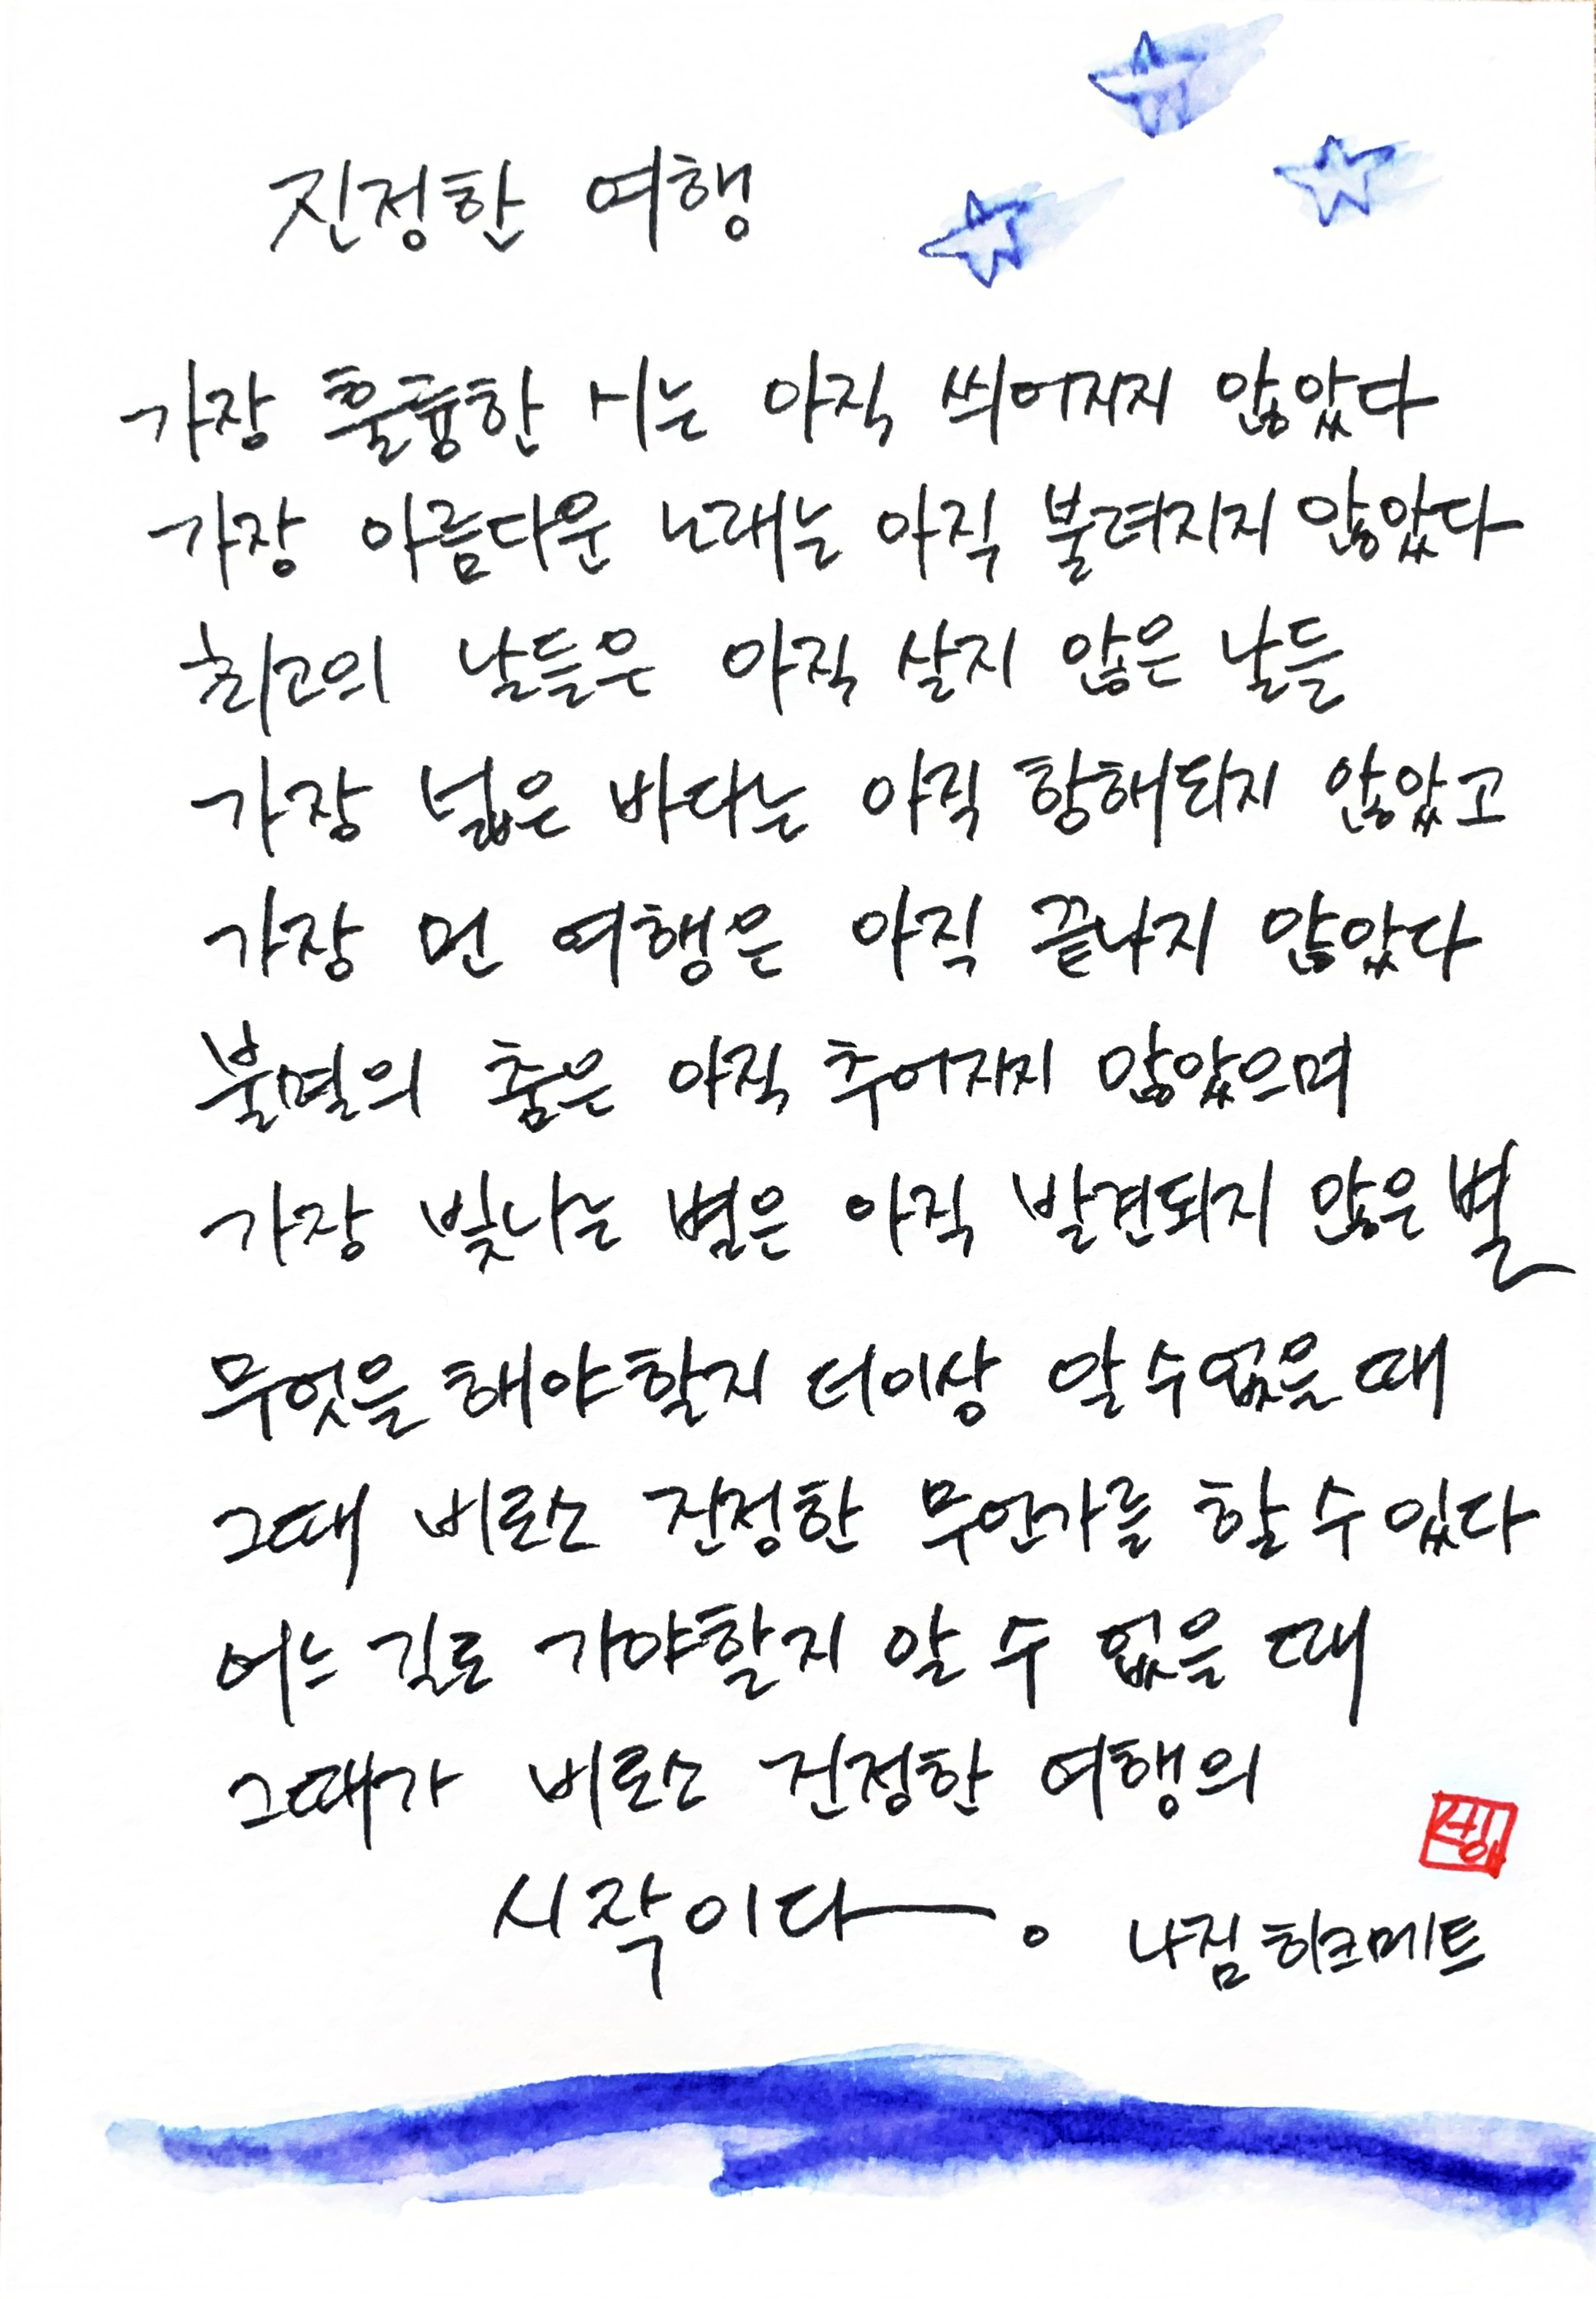 진정한 여행
가장 훌륭한 시는 아직 씌어지지 않았다
가장 아름다운 노래는 아직 불려지지 않았다
최고의 날들은 아직 살지 않은 날들
가장 넓은 바다는 아직 항해되지 않았고
가장 먼 여행은 아직 끝나지 않았다
불멸의 춤은 아직 추어지지 않았으며
가장 빛나는 별은 아직 발견되지 않은 별
무엇을 해야할지 더이상 알 수 없을 때
그때 비로소 진정한 무언가를 할 수 있다
어느 길로 가야할지 알 수 없을 때
그때가 비로소 진정한 여행의
시작이다―。
나짐 히크메트